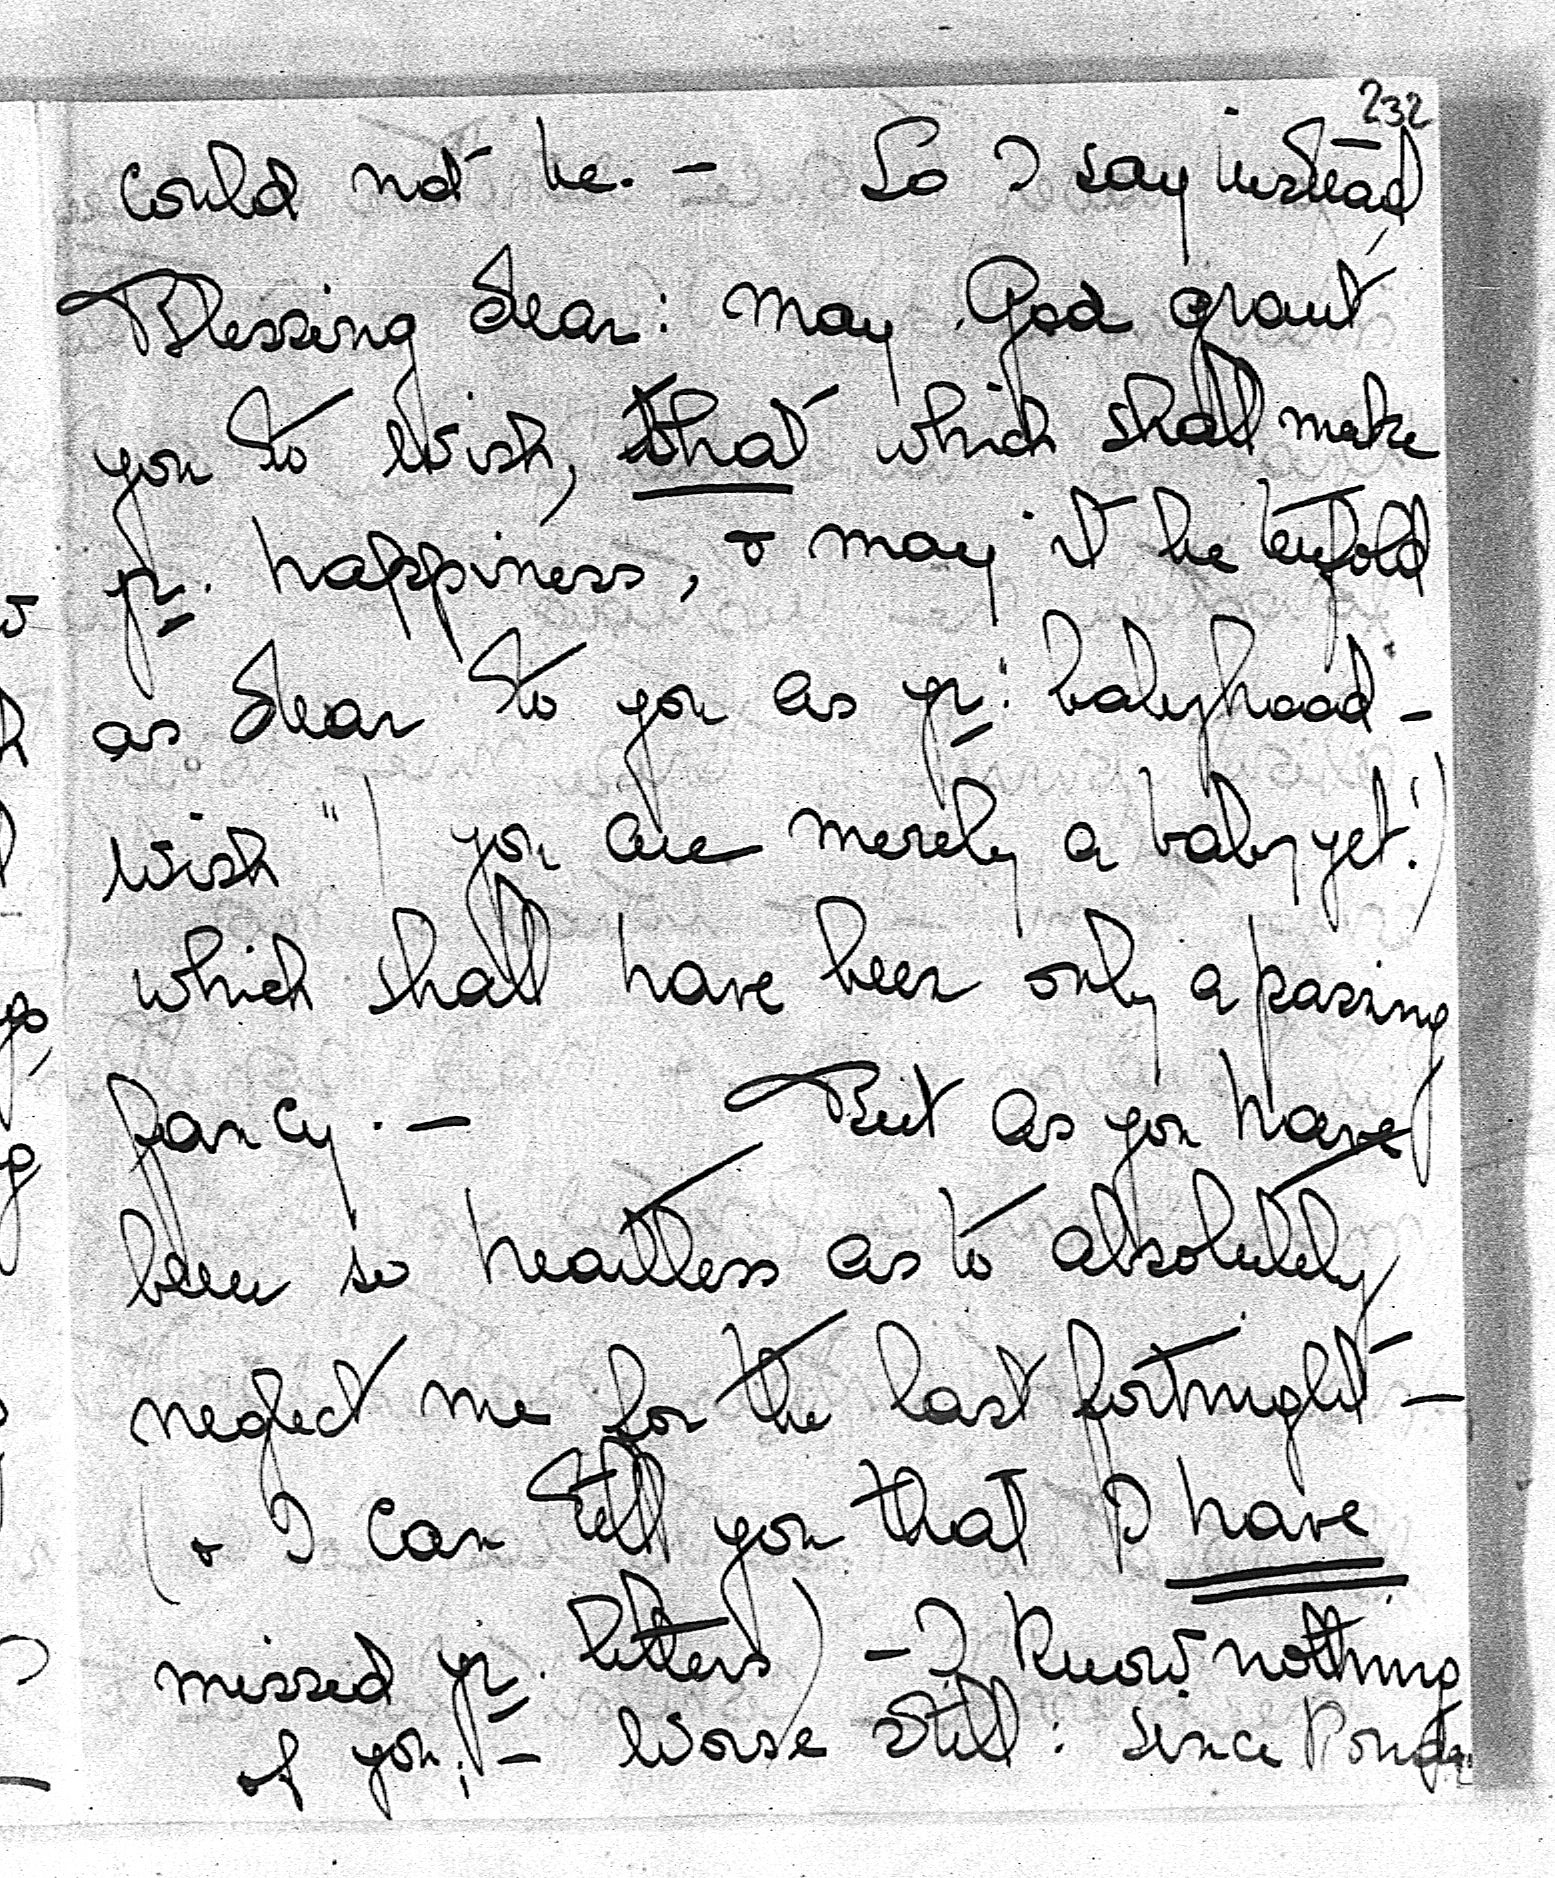 232
could not be. - So I say instead
Blessing dear: may God grant
you to wish, that which shall make
yr. happiness, & may it be tenfold
as dear to you as yr: babyhood -
wish" (you are merely a baby yet!)
which shall have been only a passing
fancy. - But as you have
been so heartless as to absolutely
neglect me for the last fortnight -
(& I can tell you that I have
missed yr. letters) - I know nothing
of you; - Worse still: since